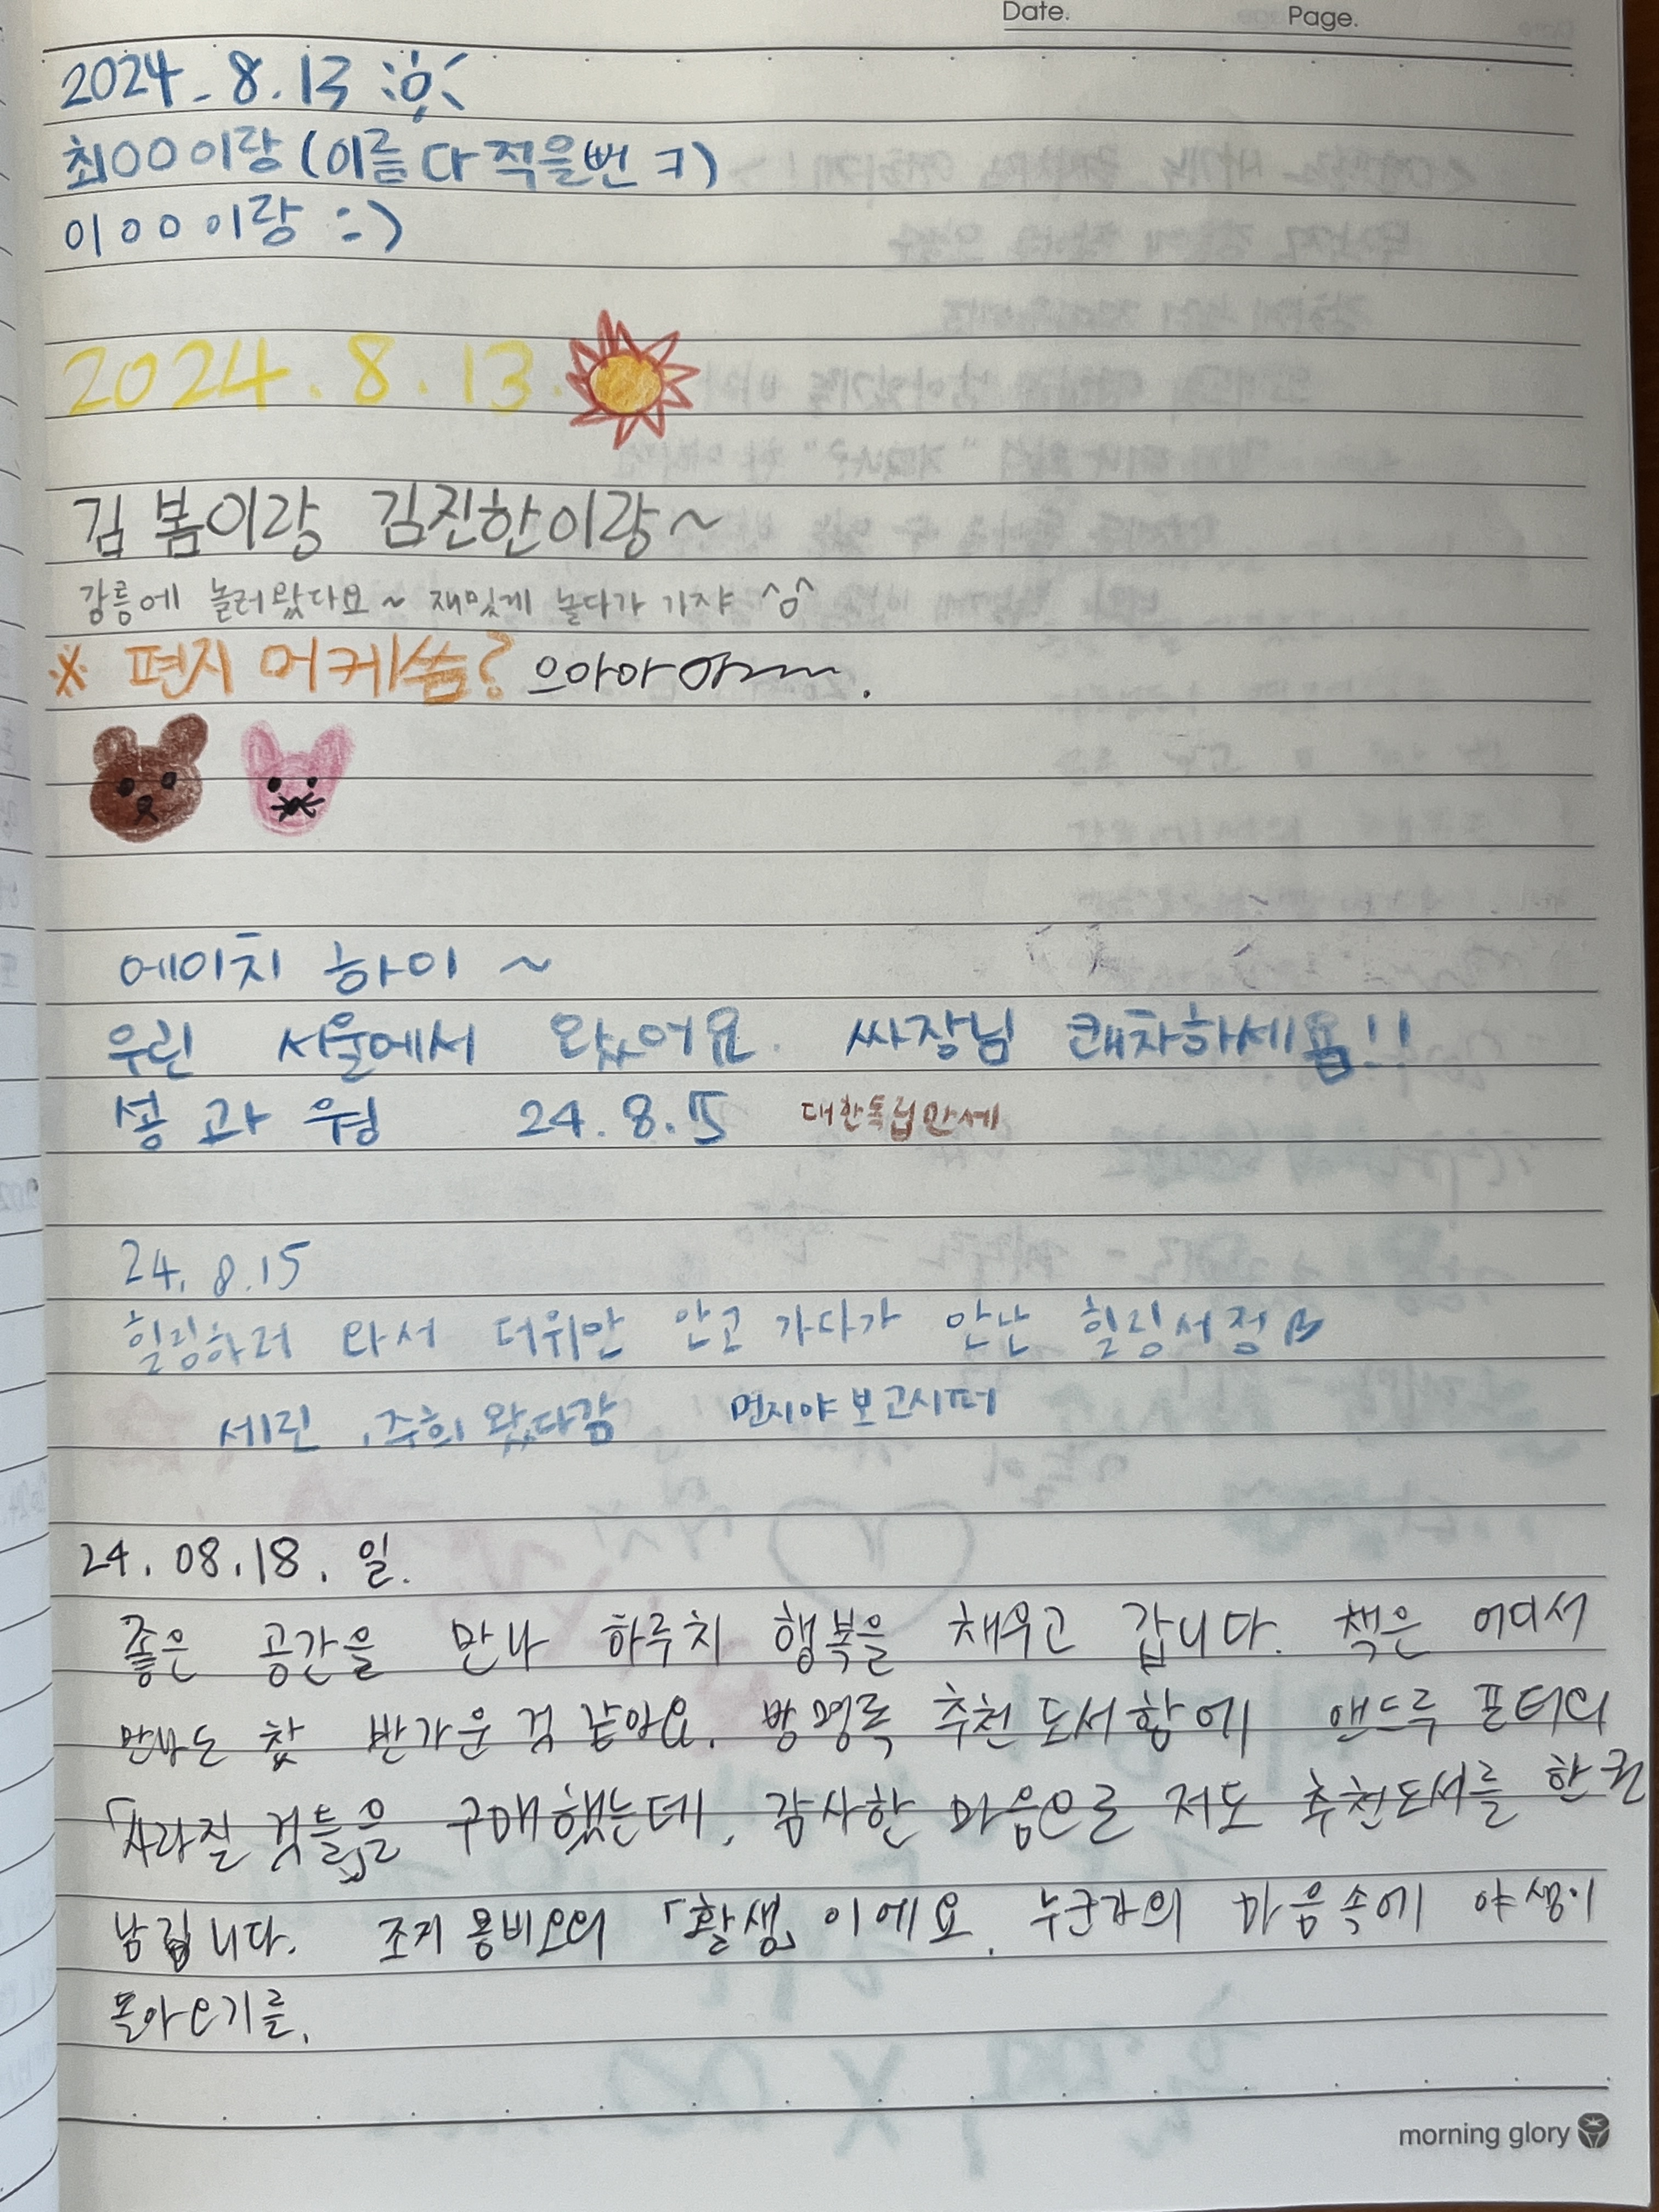 Date. Page.
2024. 8. 13
최OO이랑 (이름 다 적을번 ㅋ)
이OO이랑 :-)
2024. 8. 13.
김봄이랑 김진한이랑~
강릉에 놀러왔다요~ 재밌게 놀다가 가쟈 ^o^
※ 편지 머케씀? 으아아아~.
에이치 하이 ~
우린 서울에서 왔어요. 싸장님 쾌차하세욤!!
쏭 과 웡 24. 8. 5 대한독립만세
24. 8. 15
힐링하러 와서 더위만 안고 가다가 만난 힐링서점
세린, 주희 왔다감 먼지야 보고시퍼
24. 08. 18. 일.
좋은 공간을 만나 하루치 행복을 채우고 갑니다. 책은 어디서
만나도 참 반가운 것 같아요. 방명록 추천도서함에 앤드루 포터의
「사라진 것들」을 구매했는데, 감사한 마음으로 저도 추천도서를 한 권
남깁니다. 조지 몽비오의 「활생」이에요. 누군가의 마음속에 야생이
돌아오기를.
morning glory